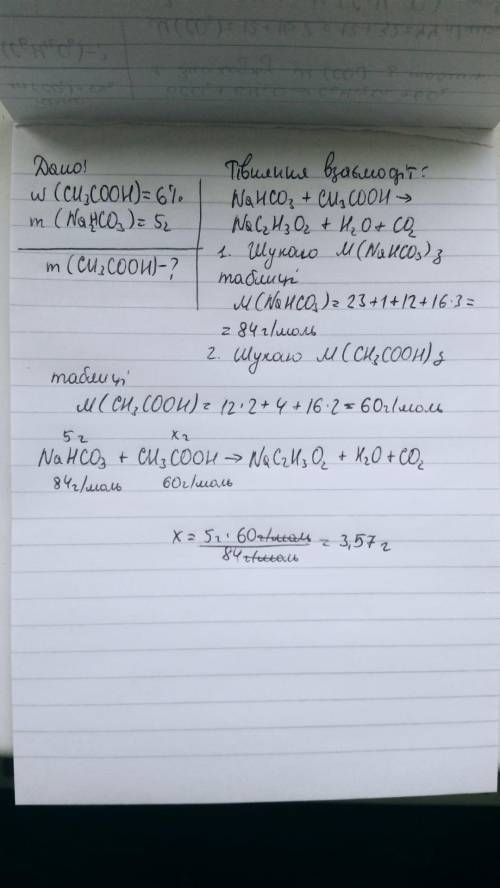 Дано!
w (CH₃COOH) = 6%
m (NaHCO₃) = 5г
m (CH₃COOH) - ?
взаємодіт:
NaHCO₃ + CH₃COOH →
NaC₂H₃O₂ + H₂O + CO₂
1. Шукаю M(NaHCO₃) з
таблиці
M(NaHCO₃) = 23+1+12+16·3=
= 84 г/моль
2. Шукаю M(CH₃COOH) з
таблиці
M(CH₃COOH) = 12·2+4+16·2=60г/моль
5 г x г
NaHCO₃ + CH₃COOH → NaC₂H₃O₂ + H₂O + CO₂
84 г/моль 60 г/моль
x = 5г · 60 г/моль = 3,57 г
84 г/моль